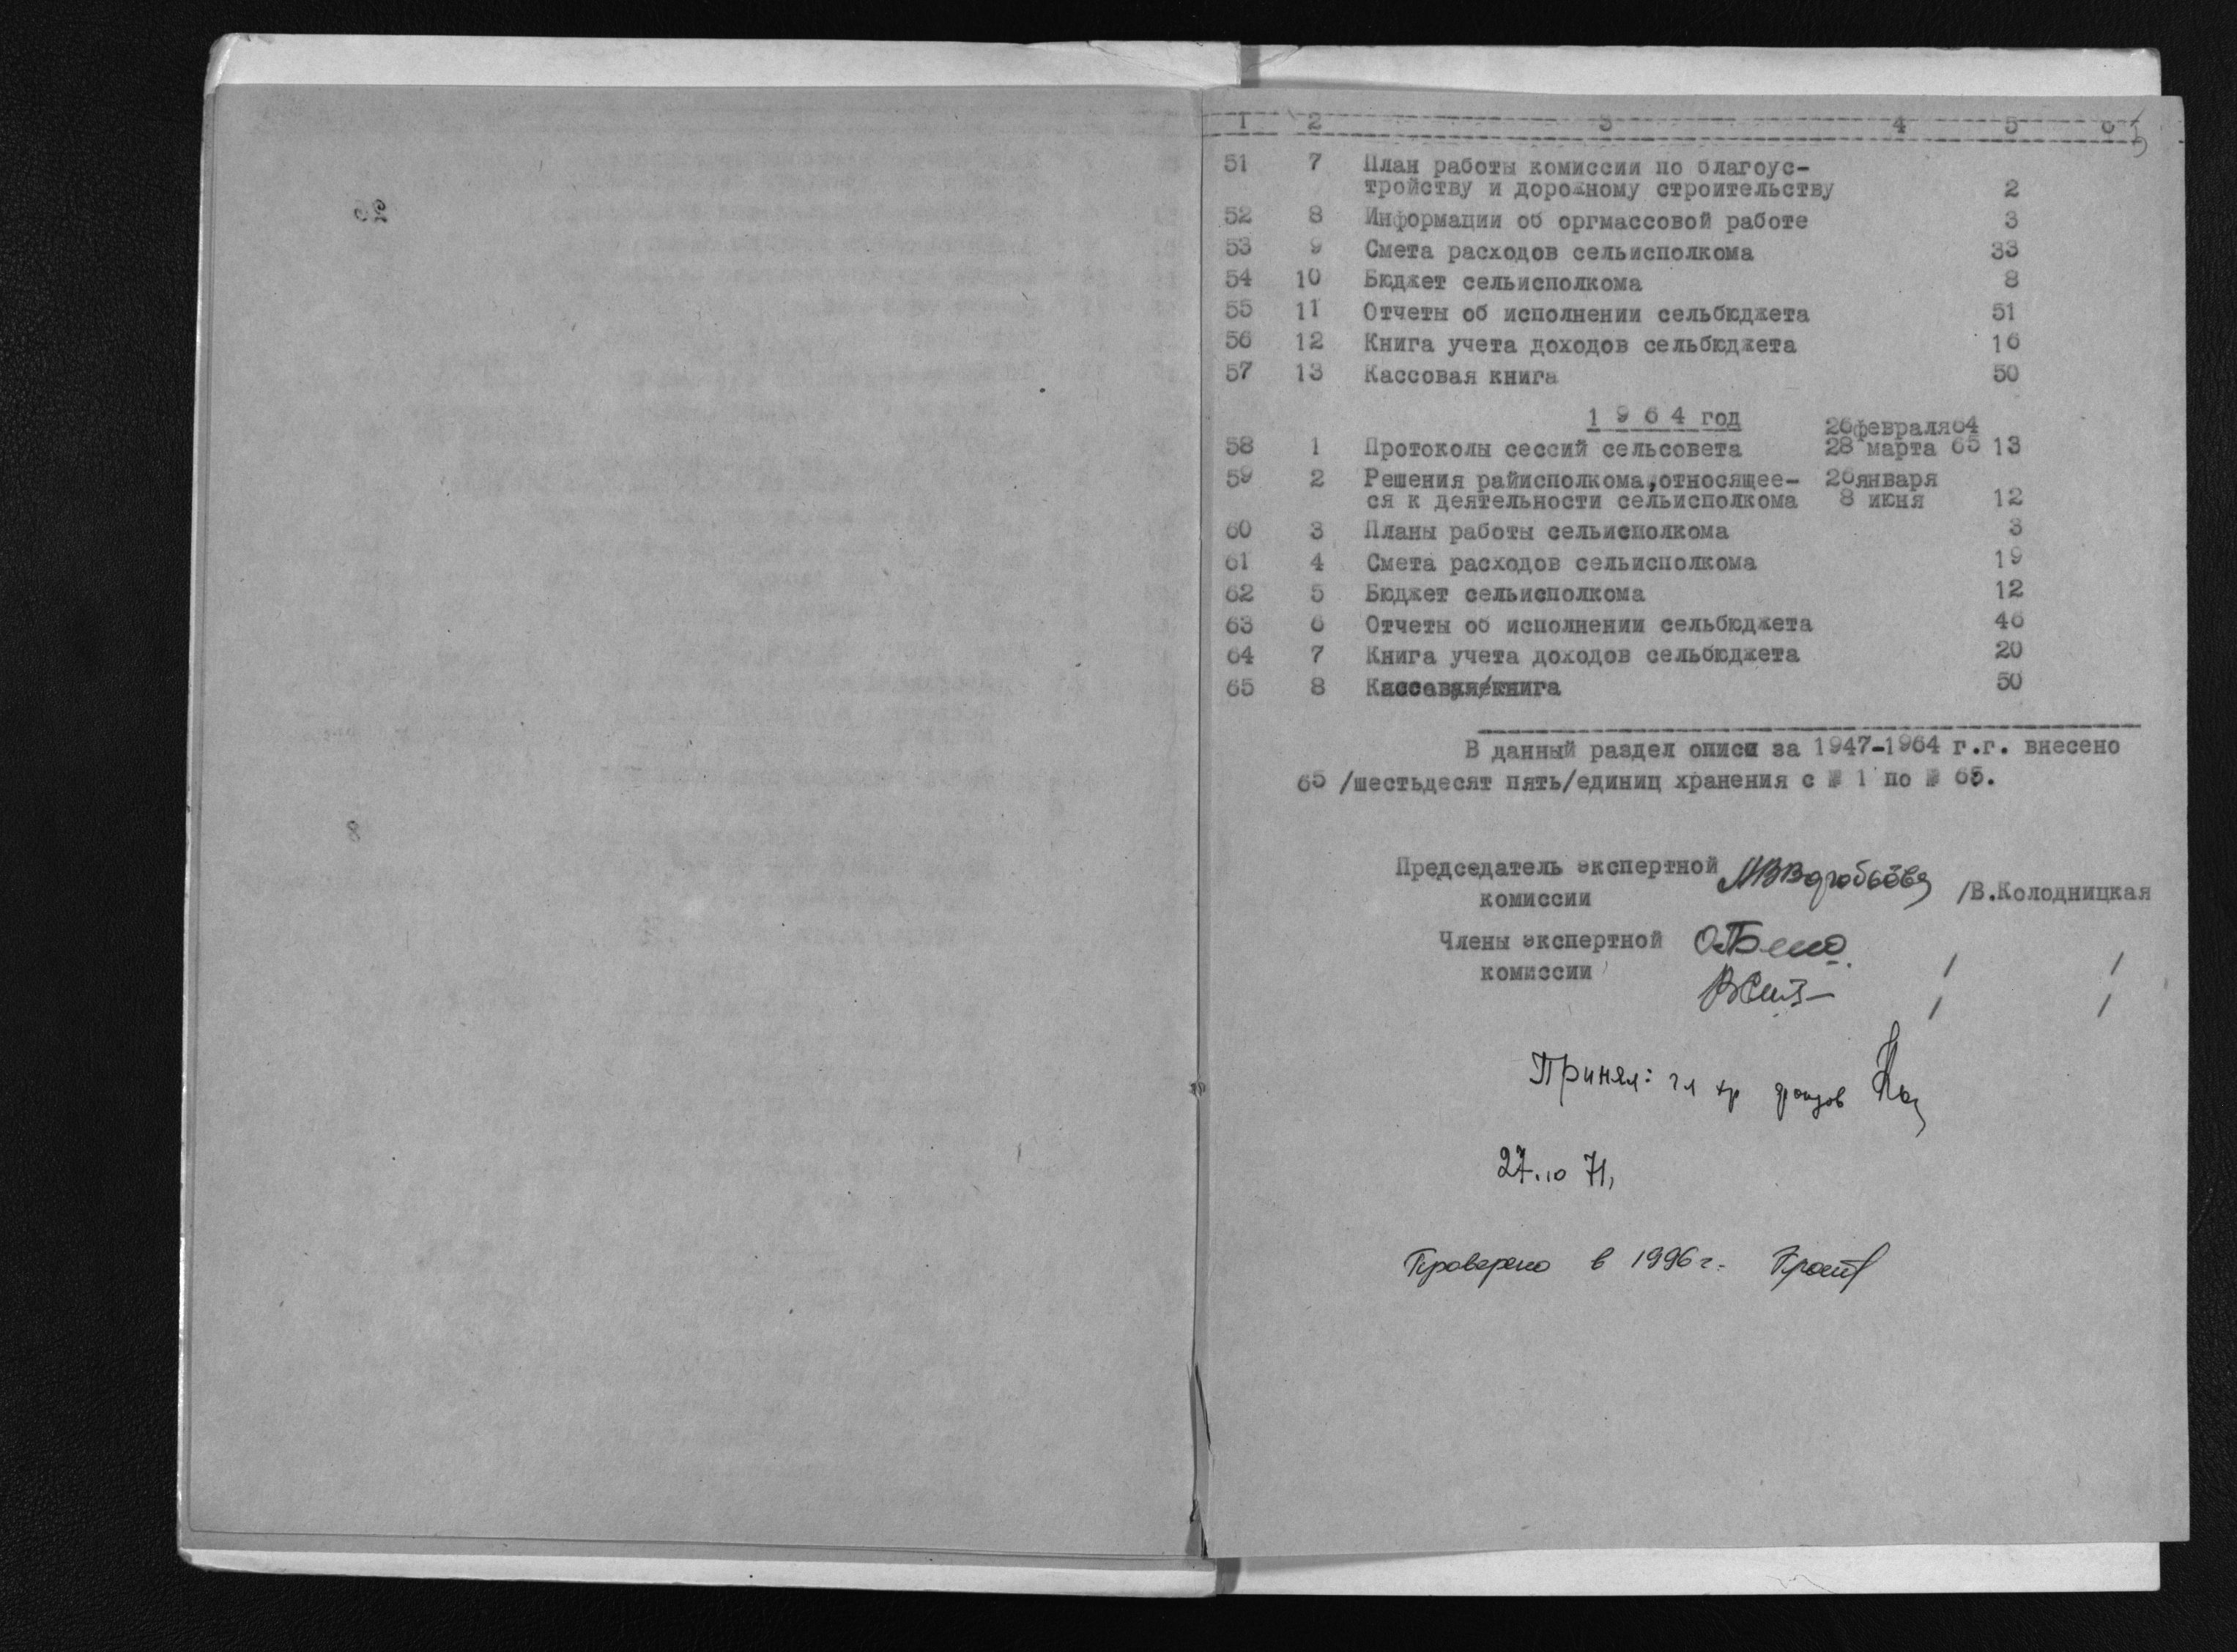 1 2 3 4 5 6
51 7 План работы комиссии по благоус-
тройству и дорожному строительству 2
52 8 Информации об оргмассовой работе 3
53 9 Смета расходов сельисполкома 33
54 10 Бюджет сельисполкома 8
55 11 Отчеты об исполнении сельбюджета 51
56 12 Книга учета доходов сельбюджета 16
57 13 Кассовая книга 50
1 9 6 4 год
26февраля64
58 1 Протоколы сессий сельсовета 28 марта 65 13
59 2 Решения райисполкома,относящее- 26января
ся к деятельности сельисполкома 8 июня 12
60 3 Планы работы сельисполкома 3
61 4 Смета расходов сельисполкома 19
62 5 Бюджет сельисполкома 12
63 6 Отчеты об исполнении сельбюджета 46
64 7 Книга учета доходов сельбюджета 20
65 8 Кассовая книга 50
В данный раздел описи за 1947-1964 г.г. внесено
65 /шестьдесят пять/единиц хранения с № 1 по № 65.
Председатель экспертной
комиссии /В.Колодницкая
Члены экспертной
комиссии / /
/ /
Принял: гл хр фондов
27.10 71,
Проверено в 1996г.